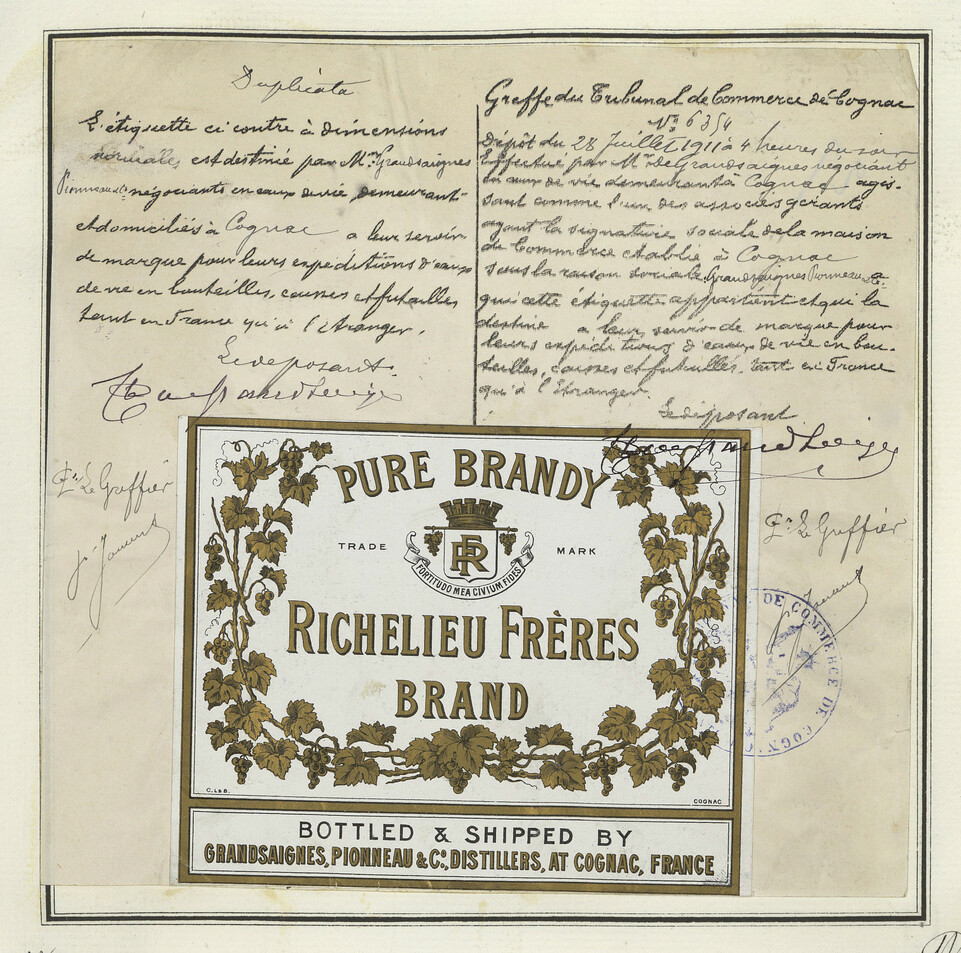 Duplicata
L'étiquette ci contre à dimensions
normales, est destinée par Mrs Grandsaignes
Pionneau & Co négociants en eaux de vie, demeurant
et domiciliés à Cognac a leur servir
de marque pour leurs expéditions d'eaux
de vie en bouteilles, caisses et futailles
tant en France qu'à l'étranger.
Le déposant.
Gr Le Greffier
Greffe du Tribunal de Commerce de Cognac
No 6354
Dépôt du 28 Juillet 1911 à 4 heures du soir
Effectué par Mr de Grandsaignes négociant
en eaux de vie demeurant à Cognac agis-
sant comme l'un des associés gérants
ayant la signature sociale de la maison
de Commerce établie à Cognac
sous la raison sociale Grandsaignes Pionneau & Co
qui cette étiquette appartient et qui la
destine a leur servir de marque pour
leurs expéditions d'eaux de vie en bou-
teilles, caisses et futailles, tant en France
qu'à l'étranger.
Le déposant
Gr Le Greffier
PURE BRANDY
TRADE MARK
FR
FORTITUDO MEA CIVIUM FIDES
RICHELIEU FRÈRES
BRAND
C. L & B.
COGNAC
BOTTLED & SHIPPED BY
GRANDSAIGNES, PIONNEAU & Co., DISTILLERS, AT COGNAC, FRANCE
DE COMMERCE DE COGN